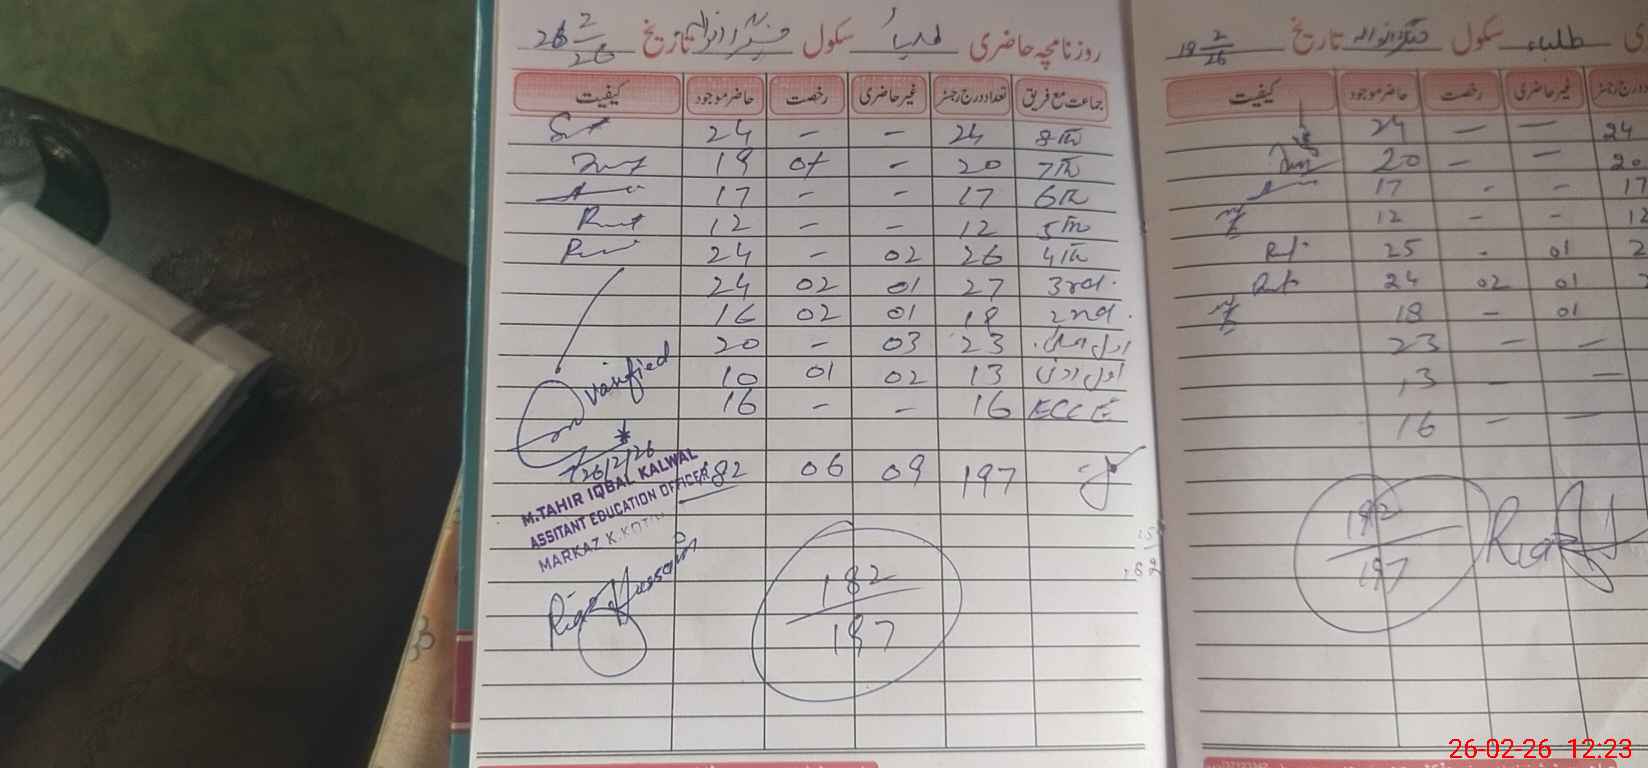 روزنامچہ حاضری طلباء سکول تاریخ 26 2/26
جماعت مع فریق تعداد درج رجسٹر غیر حاضری رخصت حاضر موجود کیفیت
8th 24 - - 24
7th 20 - 01 19
6th 17 - - 17
5th 12 - - 12
4th 26 02 - 24
3rd. 27 01 02 24
2nd. 19 01 02 16
اول اعلیٰ 23 03 - 20
اول ادنیٰ 13 02 01 10
ECCE 16 - - 16
197 09 06 182
Varified
26/2/26
M.TAHIR IQBAL KALWAL
ASSITANT EDUCATION OFFICER
MARKAZ K.KOT
Riaz Hussain
182
197
طلباء سکول تاریخ 19 2/26
درج رجسٹر غیر حاضری رخصت حاضر موجود کیفیت
24 - - 24
20 - - 20
17 - - 17
12 - - 12
01 - 25
01 02 24
01 - 18
- - 23
- - 13
- - 16
192
197
26-02-26 12:23